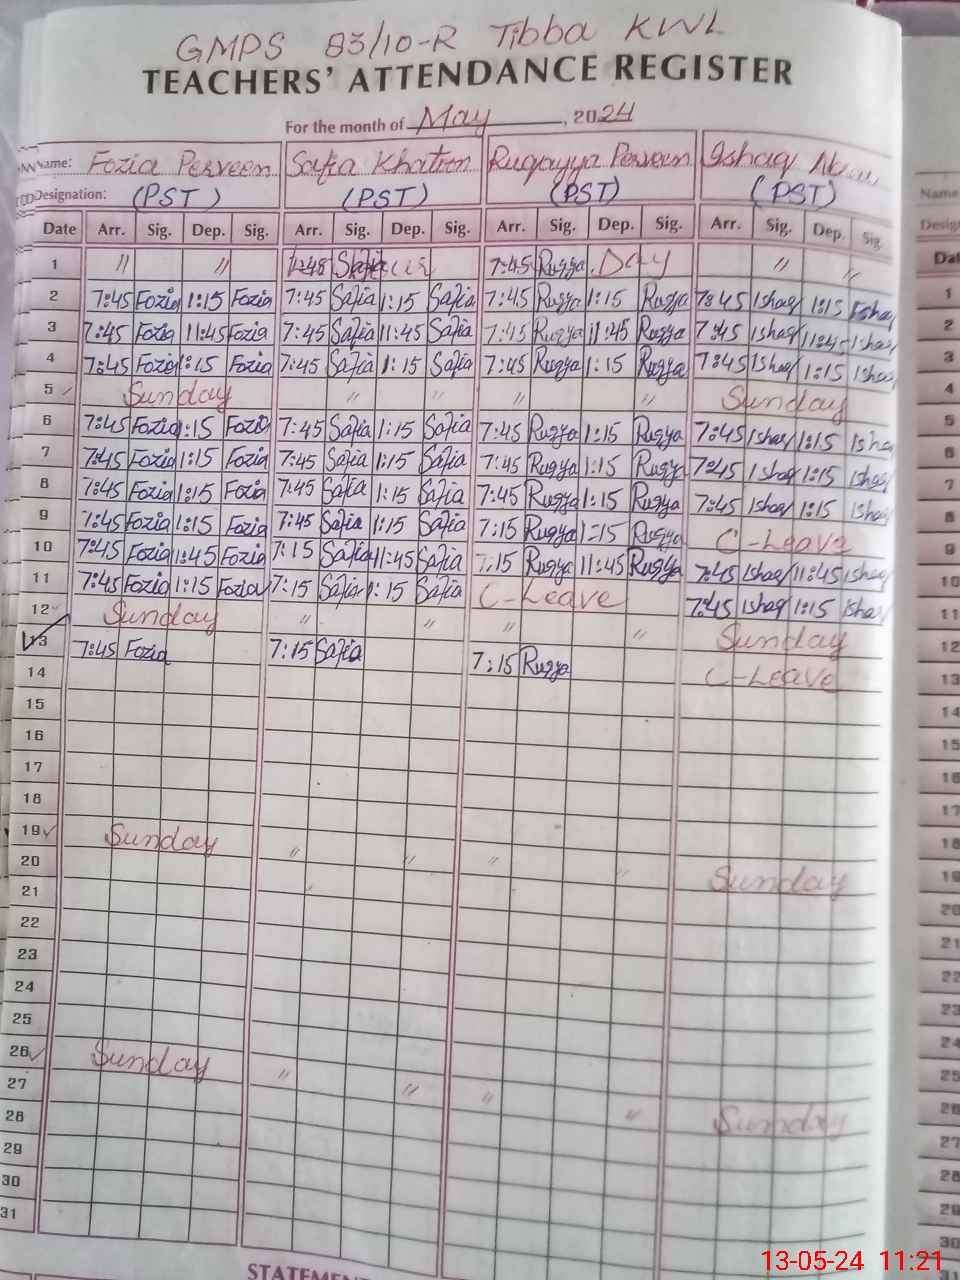 GMPS 83/10-R Tibba KWL
TEACHERS' ATTENDANCE REGISTER
For the month of May, 2024
Name: Fozia Perveen Safia Khatoon Ruqayya Perveen Ishaq
Designation: (PST) (PST) (PST) (PST)
Date Arr. Sig. Dep. Sig. Arr. Sig. Dep. Sig. Arr. Sig. Dep. Sig. Arr. Sig. Dep. Sig.
1 〃 〃 Safia 7:45 Ruqya Day 〃 〃
2 7:45 Fozia 1:15 Fozia 7:45 Safia 1:15 Safia 7:45 Ruqya 1:15 Ruqya 7:45 Ishaq 1:15 Ishaq
3 7:45 Fozia 11:45 Fozia 7:45 Safia 11:45 Safia 7:45 Ruqya 11:45 Ruqya 7:45 Ishaq 11:45 Ishaq
4 7:45 Fozia 1:15 Fozia 7:45 Safia 1:15 Safia 7:45 Ruqya 1:15 Ruqya 7:45 Ishaq 1:15 Ishaq
5 Sunday 〃 〃 〃 〃 Sunday
6 7:45 Fozia 1:15 Fozia 7:45 Safia 1:15 Safia 7:45 Ruqya 1:15 Ruqya 7:45 Ishaq 1:15 Isha
7 7:45 Fozia 1:15 Fozia 7:45 Safia 1:15 Safia 7:45 Ruqya 1:15 Ruqya 7:45 Ishaq 1:15 Ishaq
8 7:45 Fozia 1:15 Fozia 7:45 Safia 1:15 Safia 7:45 Ruqya 1:15 Ruqya 7:45 Ishaq 1:15 Ishaq
9 7:45 Fozia 1:15 Fozia 7:45 Safia 1:15 Safia 7:15 Ruqya 1:15 Ruqya C-Leave
10 7:45 Fozia 1:45 Fozia 7:15 Safia 11:45 Safia 7:15 Ruqya 11:45 Ruqya 7:45 Ishaq 11:45 Ishaq
11 7:45 Fozia 1:15 Fozia 7:15 Safia 1:15 Safia C-Leave 7:45 Ishaq 1:15 Ishaq
12 Sunday 〃 〃 〃 〃 Sunday
13 7:45 Fozia 7:15 Safia 7:15 Ruqya C-Leave
14
15
16
17
18
19 Sunday 〃 〃 〃 〃 Sunday
20
21
22
23
24
25
26 Sunday 〃 〃 〃 〃 Sunday
27
28
29
30
31
STATEMEN
Name
Desig
Dat
1
2
3
4
5
6
7
8
9
10
11
12
13
14
15
16
17
18
19
20
21
22
23
24
25
26
27
28
29
30
31
13-05-24 11:21